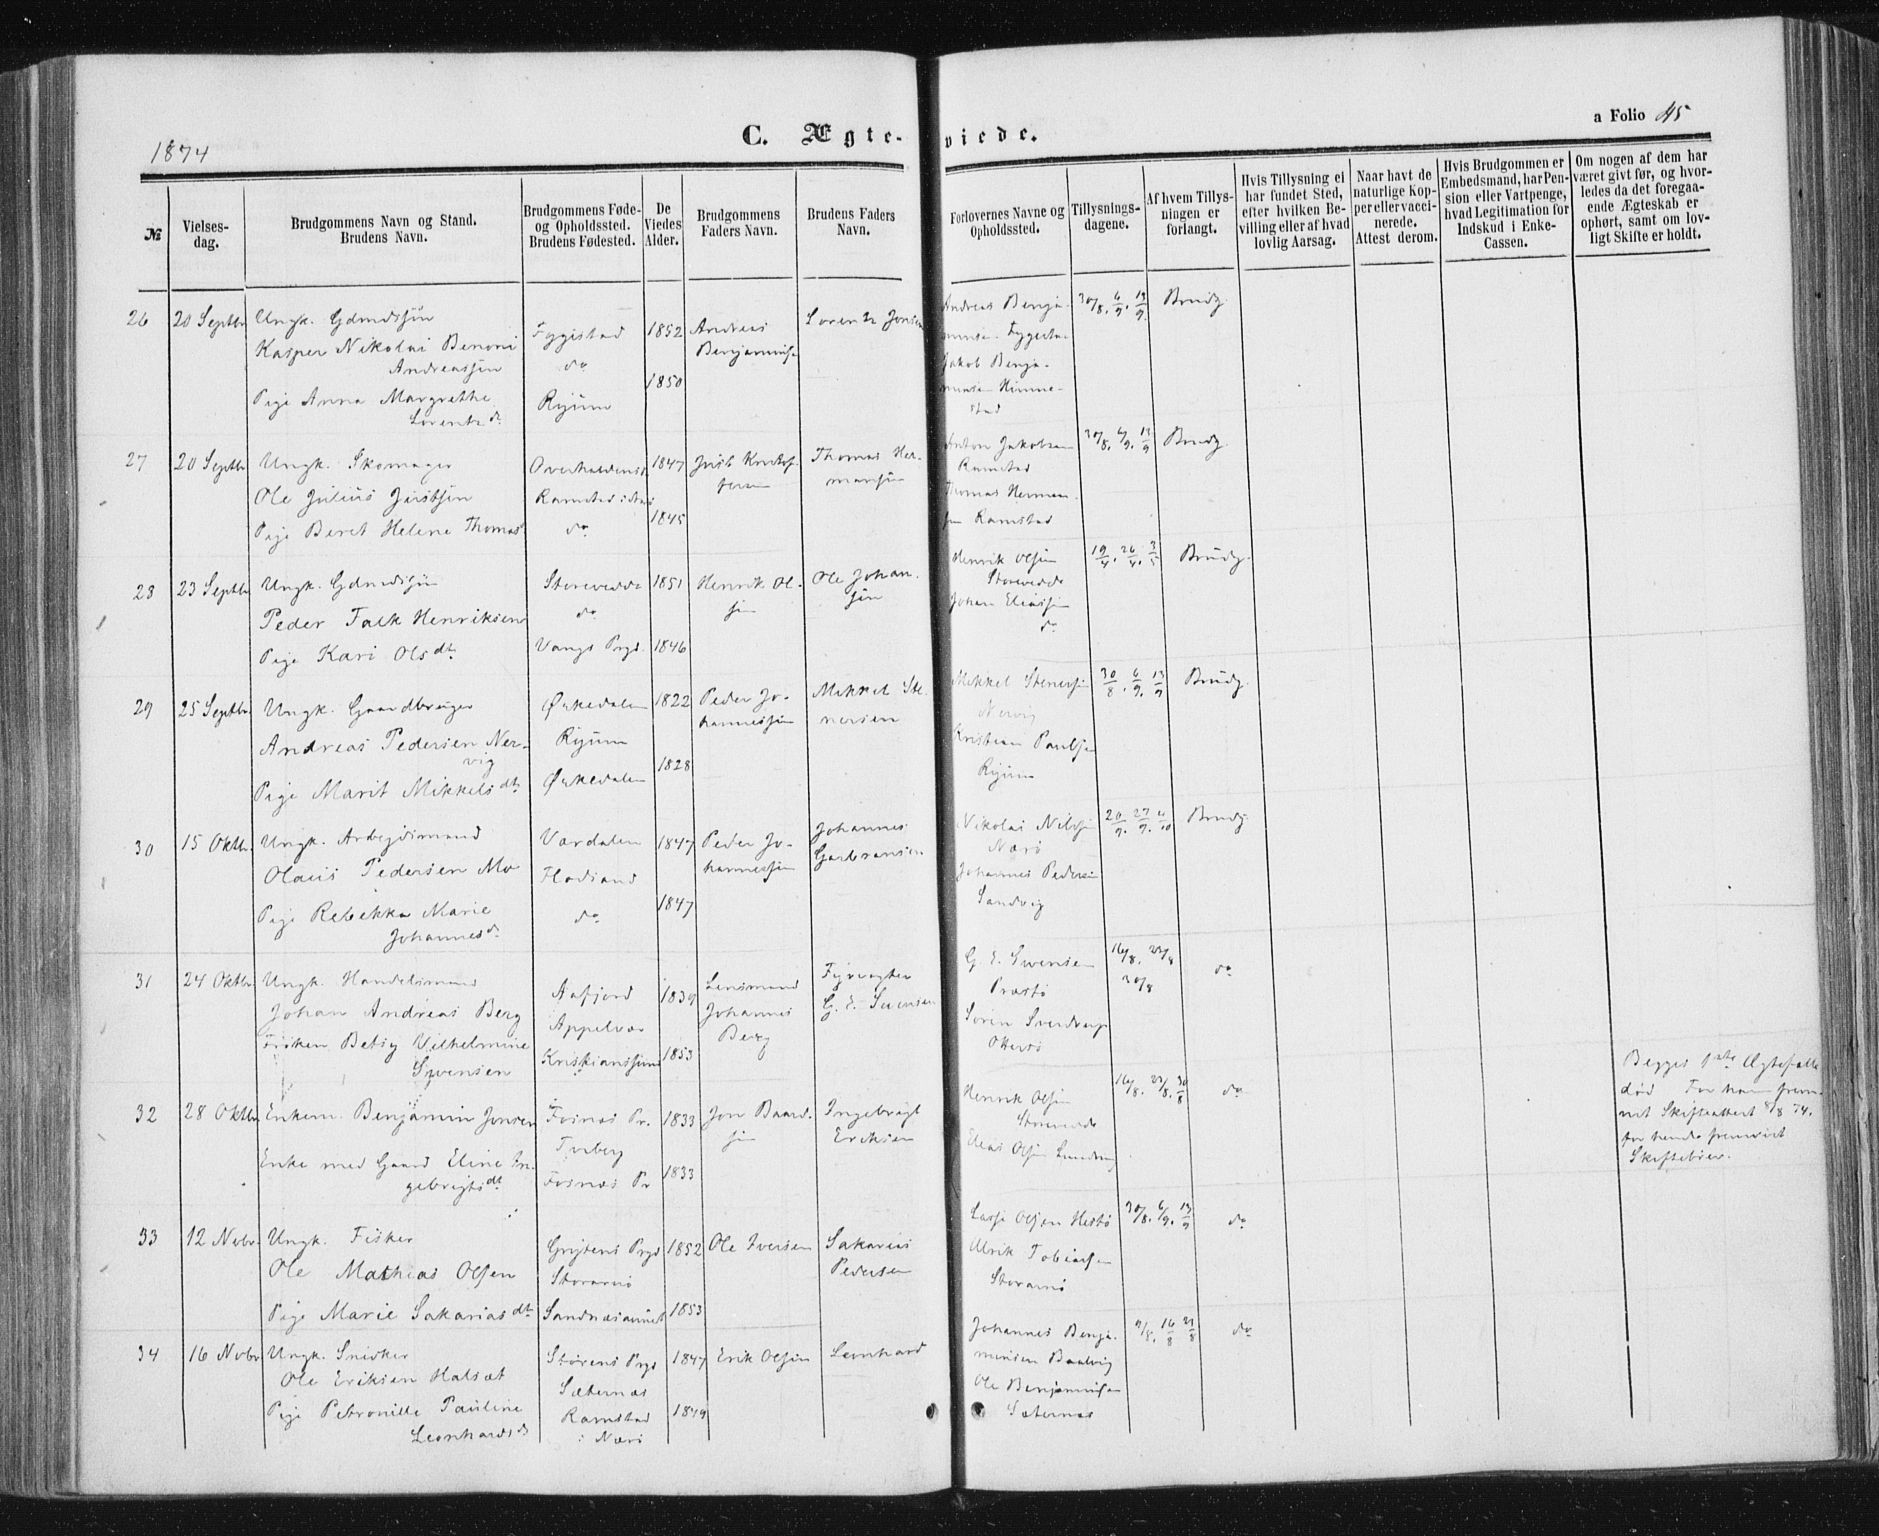 1874
C. Ægte-viede.
a Folio 45
№
Vielsesdag.
Brudgommens Navn og Stand.
Brudens Navn.
Brudgommens Føde-
og Opholdssted.
Brudens Fødested.
De
Viedes
Alder.
Brudgommens
Faders Navn.
Brudens Faders
Navn.
Forlovernes Navne og
Opholdssted.
Tillysnings-
dagene.
Af hvem Tillys-
ningen er
forlangt.
Hvis Tillysning ei
har fundet Sted,
efter hvilken Be-
villing eller af hvad
lovlig Aarsag.
Naar havt de
naturlige Kop-
per eller vacci-
nerede.
Attest derom.
Hvis Brudgommen er
Embedsmand, har Pen-
sion eller Vartpenge,
hvad Legitimation for
Indskud i Enke-
Cassen.
Om nogen af dem har
været givt før, og hvor-
ledes da det foregaa-
ende Ægteskab er
ophørt, samt om lov-
ligt Skifte er holdt.
26 20 Septbr Ungk. Gdmdssøn
Kasper Nikolai Benoni
Andreassøn
Pige Anna Margrethe
Lorentz d.
Fyggistad
do
Ryum
1852
1850
Andreas
Benjaminsen
Lorentz Jonsen
Andreas Benja-
minsen Fyggestad
Jakob Benja-
minsen Himme-
stad
30/8. 6/9. 13/9.
Brudg.
27 20 Septbr Ungk. Skomager
Ole Julius Justsøn
Pige Beret Helene Thomas
Overhaldens
Ramstad
do
1847
1845
Just
Thomas Her-
mansøn
Anton Jakobsen
Ramstad
Thomas Herman-
sen Ramstad
30/8. 6/9. 13/9
Brudg.
28 23 Septbr Ungk. Gdmdssøn
Peder Falk Henriksen
Pige Kari Olsdt.
Storevedde
do
Vangs Prgd.
1851
1846
Henrik Ol-
søn
Ole Johan-
søn
Henrik Olsøn
Storevedde
Johan Eliassøn
do
19/4. 26/4. 3/5
Brudg.
29 25 Septbr. Ungk. Gaardbruger
Andreas Pedersen Ner-
vig
Pige Marit Mikkelsdt.
Ørkedalen
Ryum
Ørkedalen
1822
1828
Peder Jo-
hannessøn
Mikkel Ste-
nersen
Mikkel Stenersøn
Nervig
Kristian Paulsen
Ryum
30/8. 6/9. 13/9
Brudg.
30 15 Oktbr. Ungk. Arbeidsmand
Olaus Pedersen Mo
Pige Rebekka Marie
Johannesd.
Værdalen
Flosand
do
1847
1847
Peder Jo-
hannessøn
Johannes
Garbransen
Nikolai Nilsøn
Nærø
Johannes Pedersen
Sandvig
20/9. 27/9. 4/10
Brudg.
31 24 Oktbr. Ungk. Handelsmand
Johan Andreas Berg
Frøken Betsy Vilhelmine
Svensen
Aafjord
Appelvær
Kristianssund
1839
1853
Lensmand
Johannes
Berg
Fyrvogter
G. E. Svensen
G. E. Svensen
Præstø
Søren Sverdrup
Otterø
16/8. 23/8
30/8
do
32 28 Oktbr Enkem. Benjamin Jonsen
Enke med Gaard Eline In-
gebrigtsdt.
Fosnæs Pr.
Tverberg
Fosnæs Pr
1833
1833
Jon Baard-
søn
Ingebrigt
Eriksen
Henrik Olsøn
Storevedde
Elias Olsøn
16/8. 23/8. 30/8
do
Begges 1ste Ægtefælle
død For ham frem-
vist Skifteattest 8/8 74.
for hende fremvist
Skiftebrev.
33 12 Novbr. Ungk. Fisker
Ole Mathias Olsen
Pige Marie Sakariasdt.
Grytens Prgd
Storarnø
Sandnæsaunet
1852
1853
Ole Iversen
Sakarias
Pedersen
Lasse Olsen Hestø
Ulrik Tobiassen
Storarnø
30/8. 6/9. 13/9
do
34 16 Novbr. Ungk. Snedker
Ole Eriksen Halsæt
Pige Petronille Pauline
Leonhards d.
Størens Prgd
Sæternæs
Ramstad
i Nærø
1847
1849
Erik Olsøn
Leonhard
Johannes Benja-
minsen
Ole Benjaminsen
Sæternæs
9/8. 16/8 23/8
do